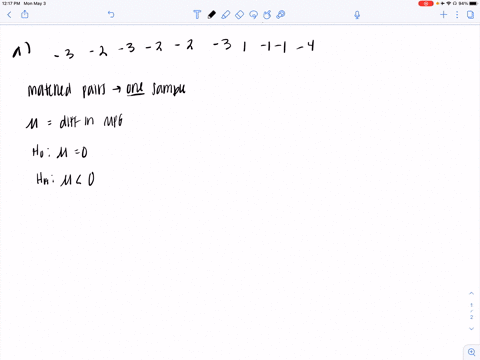 12:17 PM Mon May 3
94%
1) -3 -2 -3 -2 -2 -3 1 -1 -1 -4
matched pairs → one sample
μ = diff in MPG
H₀: μ = 0
Hₐ: μ < 0
1
/
2